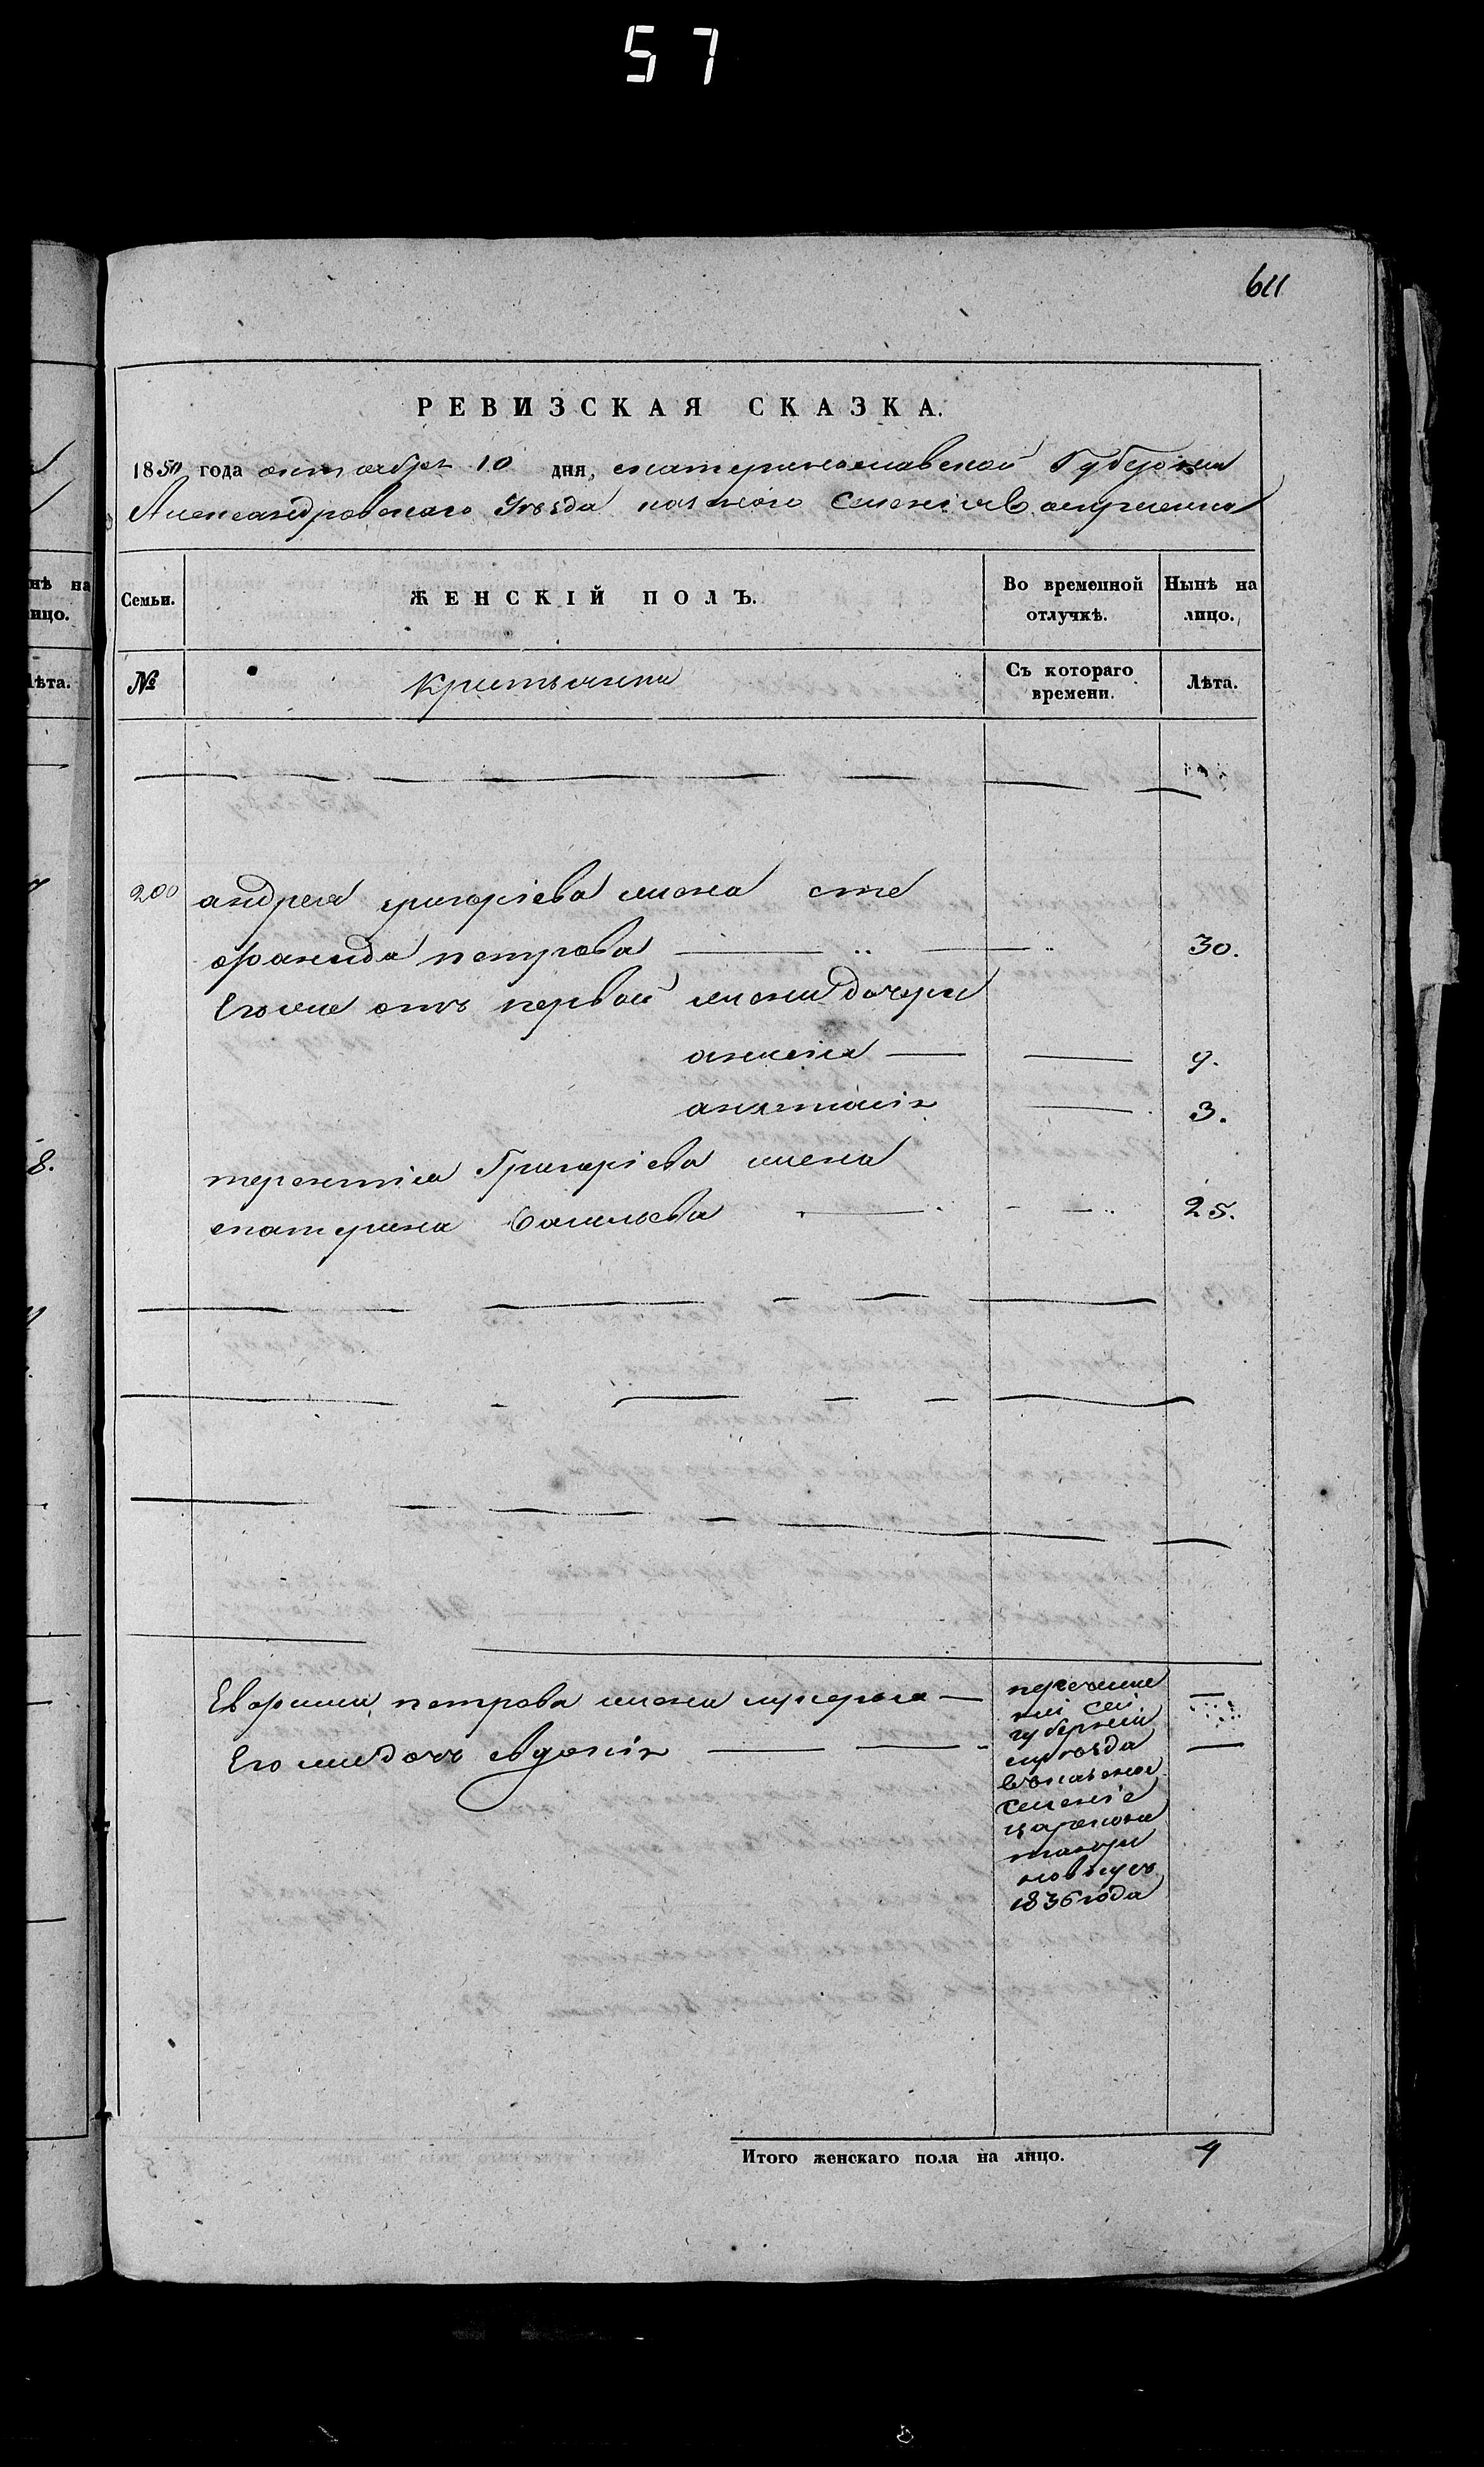 57
611
РЕВИЗСКАЯ СКАЗКА.
1850 года октября 10 дня, екатеринославской Губернии
Александровского Уезда казенного Селенія
Семьи. ЖЕНСКІЙ ПОЛЪ. Во временной отлучкѣ. Нынѣ на лицо.
№ Съ котораго времени. Лѣта.
нѣ на
ицо.
лѣта.
200 андрея григоріева жена сте
фанида петрова 30.
Его же отъ первой жены дочери
аксинія 9.
анастасія 3.
8.
терентія Григоріева жена
екатерина васильева 25.
петрова жена
Его же дочь евдокія
перечисле
ны сей
губерніи
уезда
въ казенное
селеніе
1836 года
Итого женскаго пола на лицо. 4